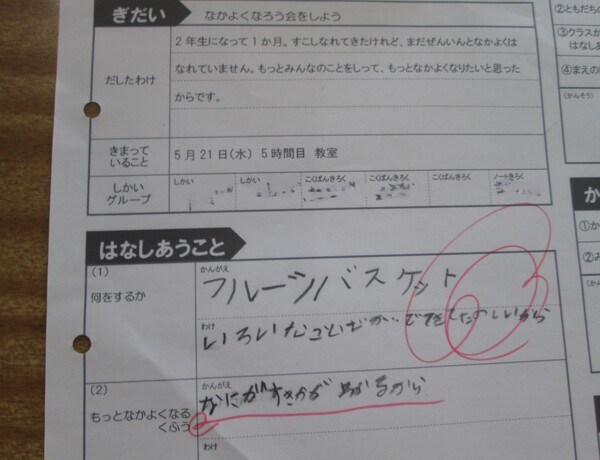 ぎだい
なかよくなろう会をしよう
だしたわけ
2年生になって1か月。すこしなれてきたけれど、まだぜんいんとなかよくは
なれていません。もっとみんなのことをしって、もっとなかよくなりたいと思った
からです。
きまって
いること
5月21日(水) 5時間目 教室
しかい
グループ
しかい
しかい
こくばんきろく
こくばんきろく
こくばんきろく
ノートきろく
はなしあうこと
(1)
何をするか
かんがえ
フルーツバスケット
わけ
いろい
たのしいから
(2)
もっとなかよくなる
くふう
かんがえ
なにがすきかが わかるから
わけ
②ともだちの
③クラスが
はなしあ
④まえの
(かんそう)
か
①か
②み
(か